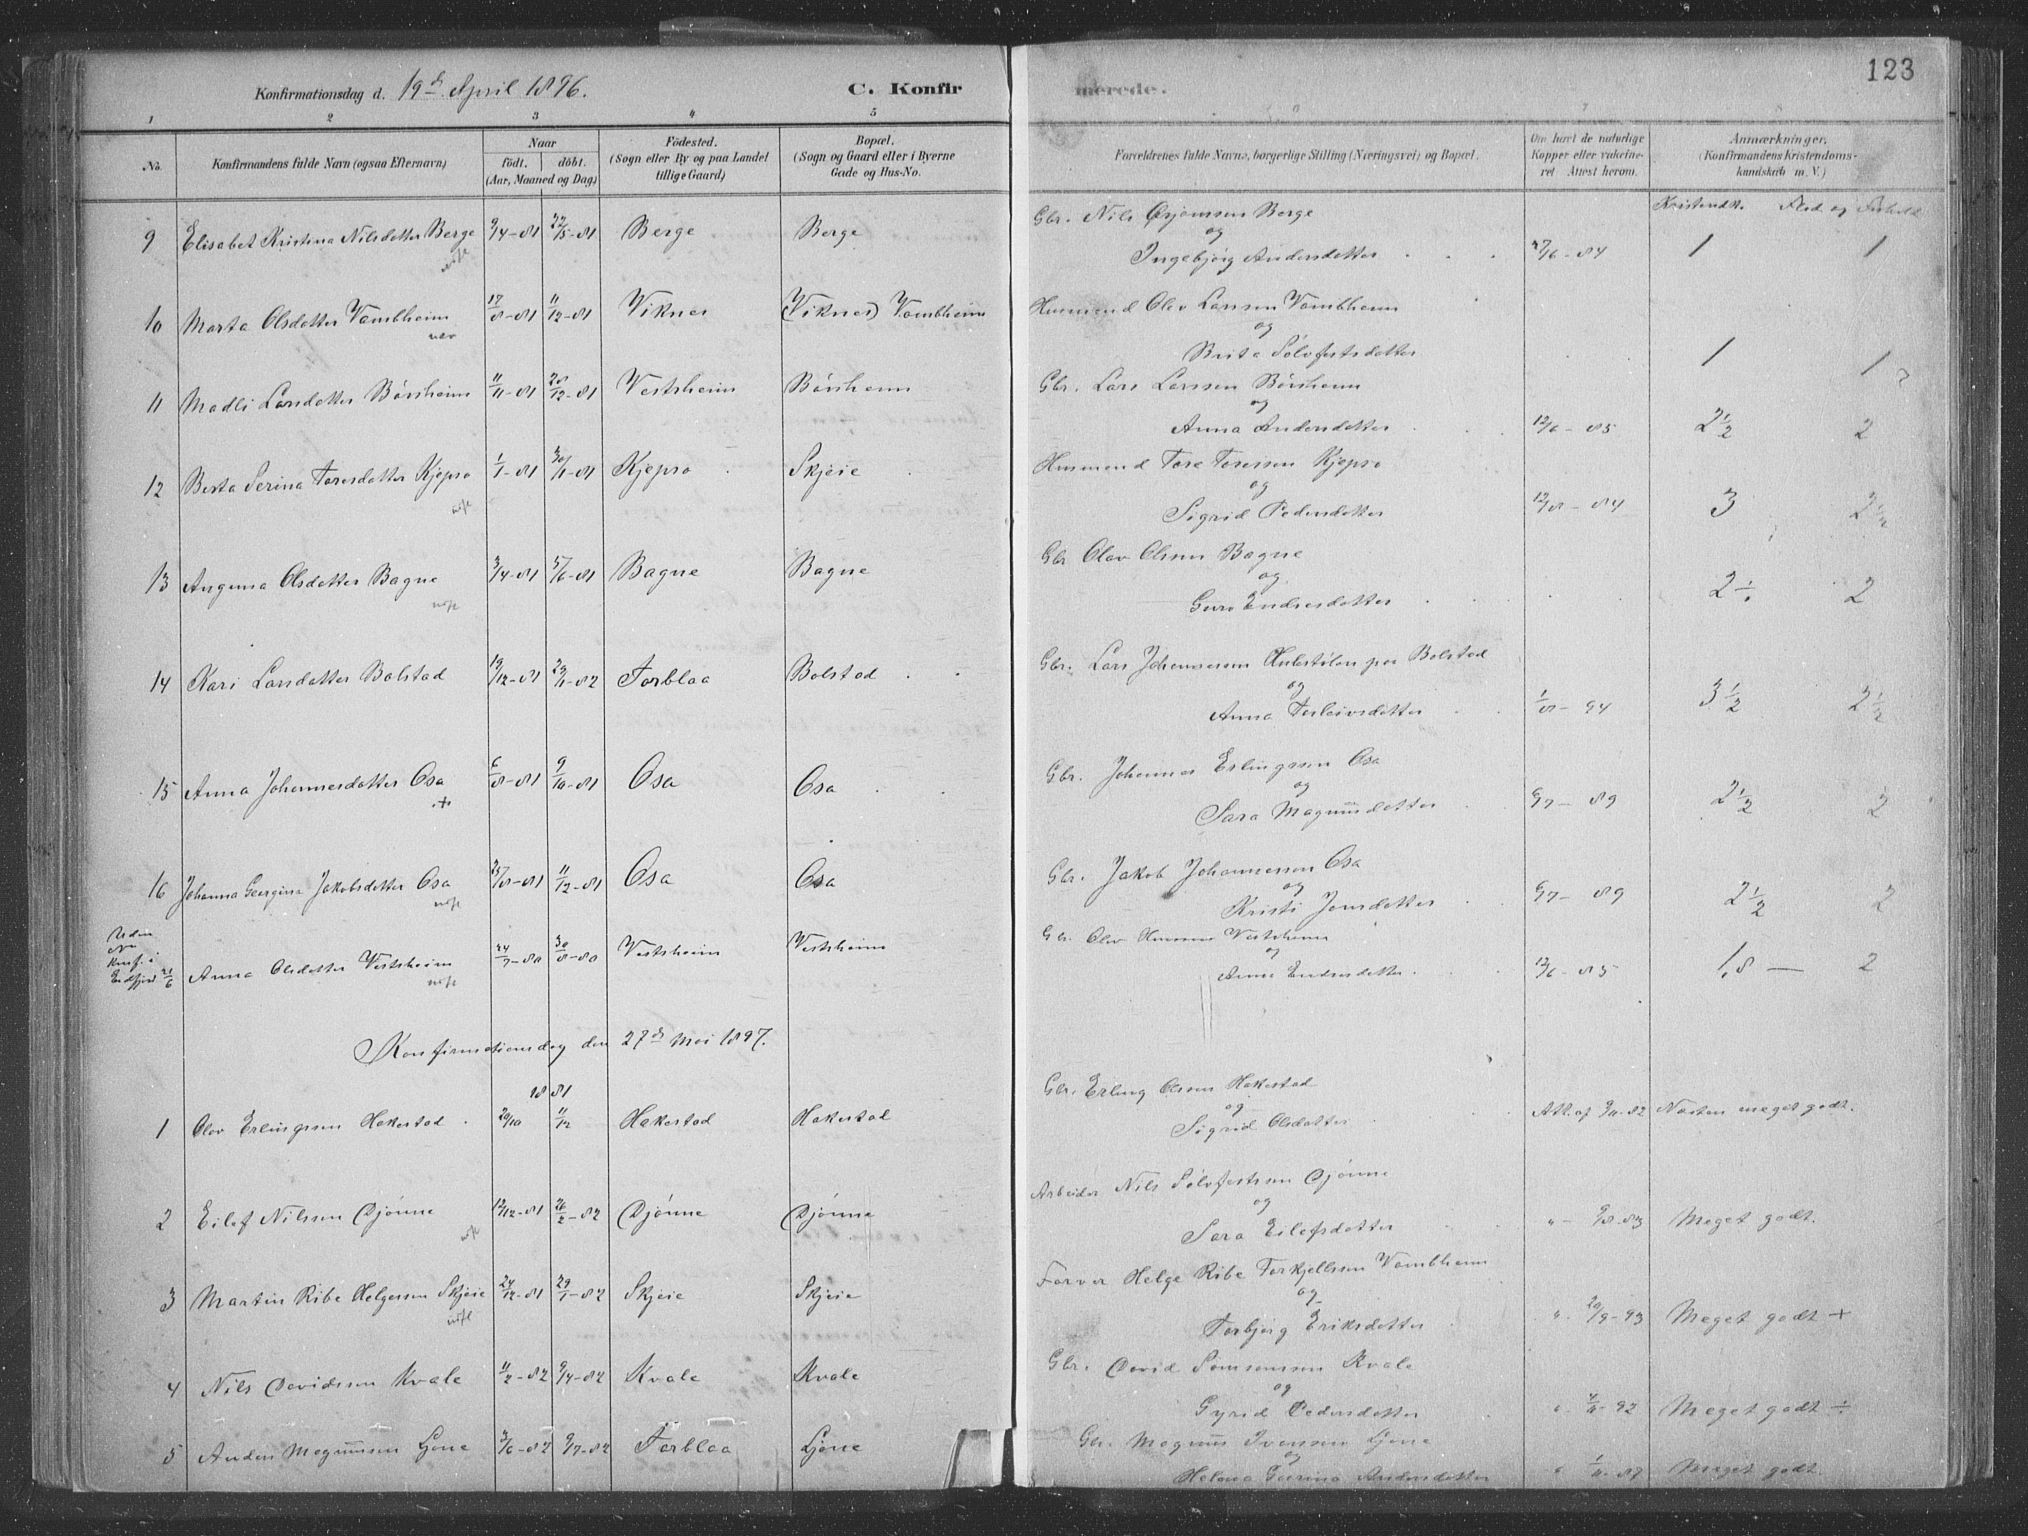 123
Konfirmationsdag d. 19de April 1896. C. Konfirmerede.
1 2 3 4 5 6 7 8
No. Konfirmandens fulde Navn (ogsaa Efternavn) Naar født. døbt. (Aar, Maaned og Dag) Födested. (Sogn eller By og paa Landet tillige Gaard) Bopæl. (Sogn og Gaard eller i Byerne Gade og Hus-No. Forældrenes fulde Navne, borgerlige Stilling (Næringsvei) og Bopæl. Om havt de naturlige Kopper eller vakcineret Attest herom. Anmærkninger. (Konfirmandens Kristendomskundskab m. V.)
Kristendsk. Flid og Forhold
9 Elisabet Kristina Nilsdatter Berge 9/4-81 22/5-81 Berge Berge Gbr. Nils Ørjansen Berge
og
Ingebjørg Andersdatter 27/6-84 1 1
10 Marta Olsdatter Vambheim 17/8-81 11/12-81 Viknes (Viknes) Vambheim Husmend Olav Larssen Vambheim
og
Brita Sølvfestsdatter 1 1
11 Madli Larsdatter Børsheim 11/11-81 28/12-81 Vestsheim Børsheim Gbr. Lars Larssen Børsheim
og
Anna Andersdatter 12/6-85 2 1/2 2
12 Berta Serina Toresdatter Kjepso 1/1-81 30/1-81 Kjepso Skjeie Husmend Tore Toressen Kjepso
og
Sigrid Pedersdatter 12/8-84 3 2 1/2
13 Angunna Olsdatter Bagne 3/4-81 5/6-81 Bagne Bagne Gbr. Olav Olssen Bagne
og
Guro Endresdatter 2 ÷ 2
14 Kari Larsdatter Bolstad 19/12-81 29/1-82 Torblaa Bolstad Gbr. Lars Johannessen Hulestølen paa Bolstad
og
Anna Torleivsdatter 1/8-94 3 1/2 2 1/2
15 Anna Johannesdatter Osa 6/8-81 9/10-81 Osa Osa Gbr. Johannes Erlingssen Osa
og
Sara Magnusdatter 6/7-89 2 1/2 2
16 Johanna Georgina Jakobsdatter Osa 25/8-81 11/12-81 Osa Osa Gbr. Jakob Johannessen Osa
og
Kristi Jonsdatter 6/7-89 2 1/2 2
Uden
No
Konf. i
Eidfjord 21/6 Anna Olsdatter Vestsheim 24/7-80 30/8-80 Vestsheim Vestsheim Gbr. Olav Hansen Vestsheim
og
Anna Endresdatter 12/6-85 1,8 — 2
Konfirmationsdag den 27de Mai 1897.
1881
1 Olav Erlingssen Hakestad 20/10 11/12 Hakestad Hakestad Gbr. Erling Olssen Hakestad
og
Sigrid Olsdatter Att. af 9/11-82 Næsten meget godt.
2 Eilef Nilssen Djønne 12/12-81 26/2-82 Djønne Djønne Arbeider Nils Sølvfestssen Djønne
og
Sara Eilefsdatter " - 9/8-83 Meget godt.
3 Martin Ribe Helgessen Skjeie 24/12-81 29/1-82 Skjeie Skjeie Farver Helge Ribe Torkjellssen Vambheim
og
Torbjørg Eriksdatter " 20/9-93 Meget godt +
4 Nils Davidssen Kvale 11/2-82 9/4-82 Kvale Kvale Gbr. David Samsonssen Kvale
og
Gyrid Pedersdatter " 4/11-92 Meget godt ÷
5 Anders Magnussen Ljone 3/6-82 9/7-82 Torblaa Ljone Gbr. Magnus Iverssen Ljone
og
Helena Andersdatter " 1/11-87 Meget godt